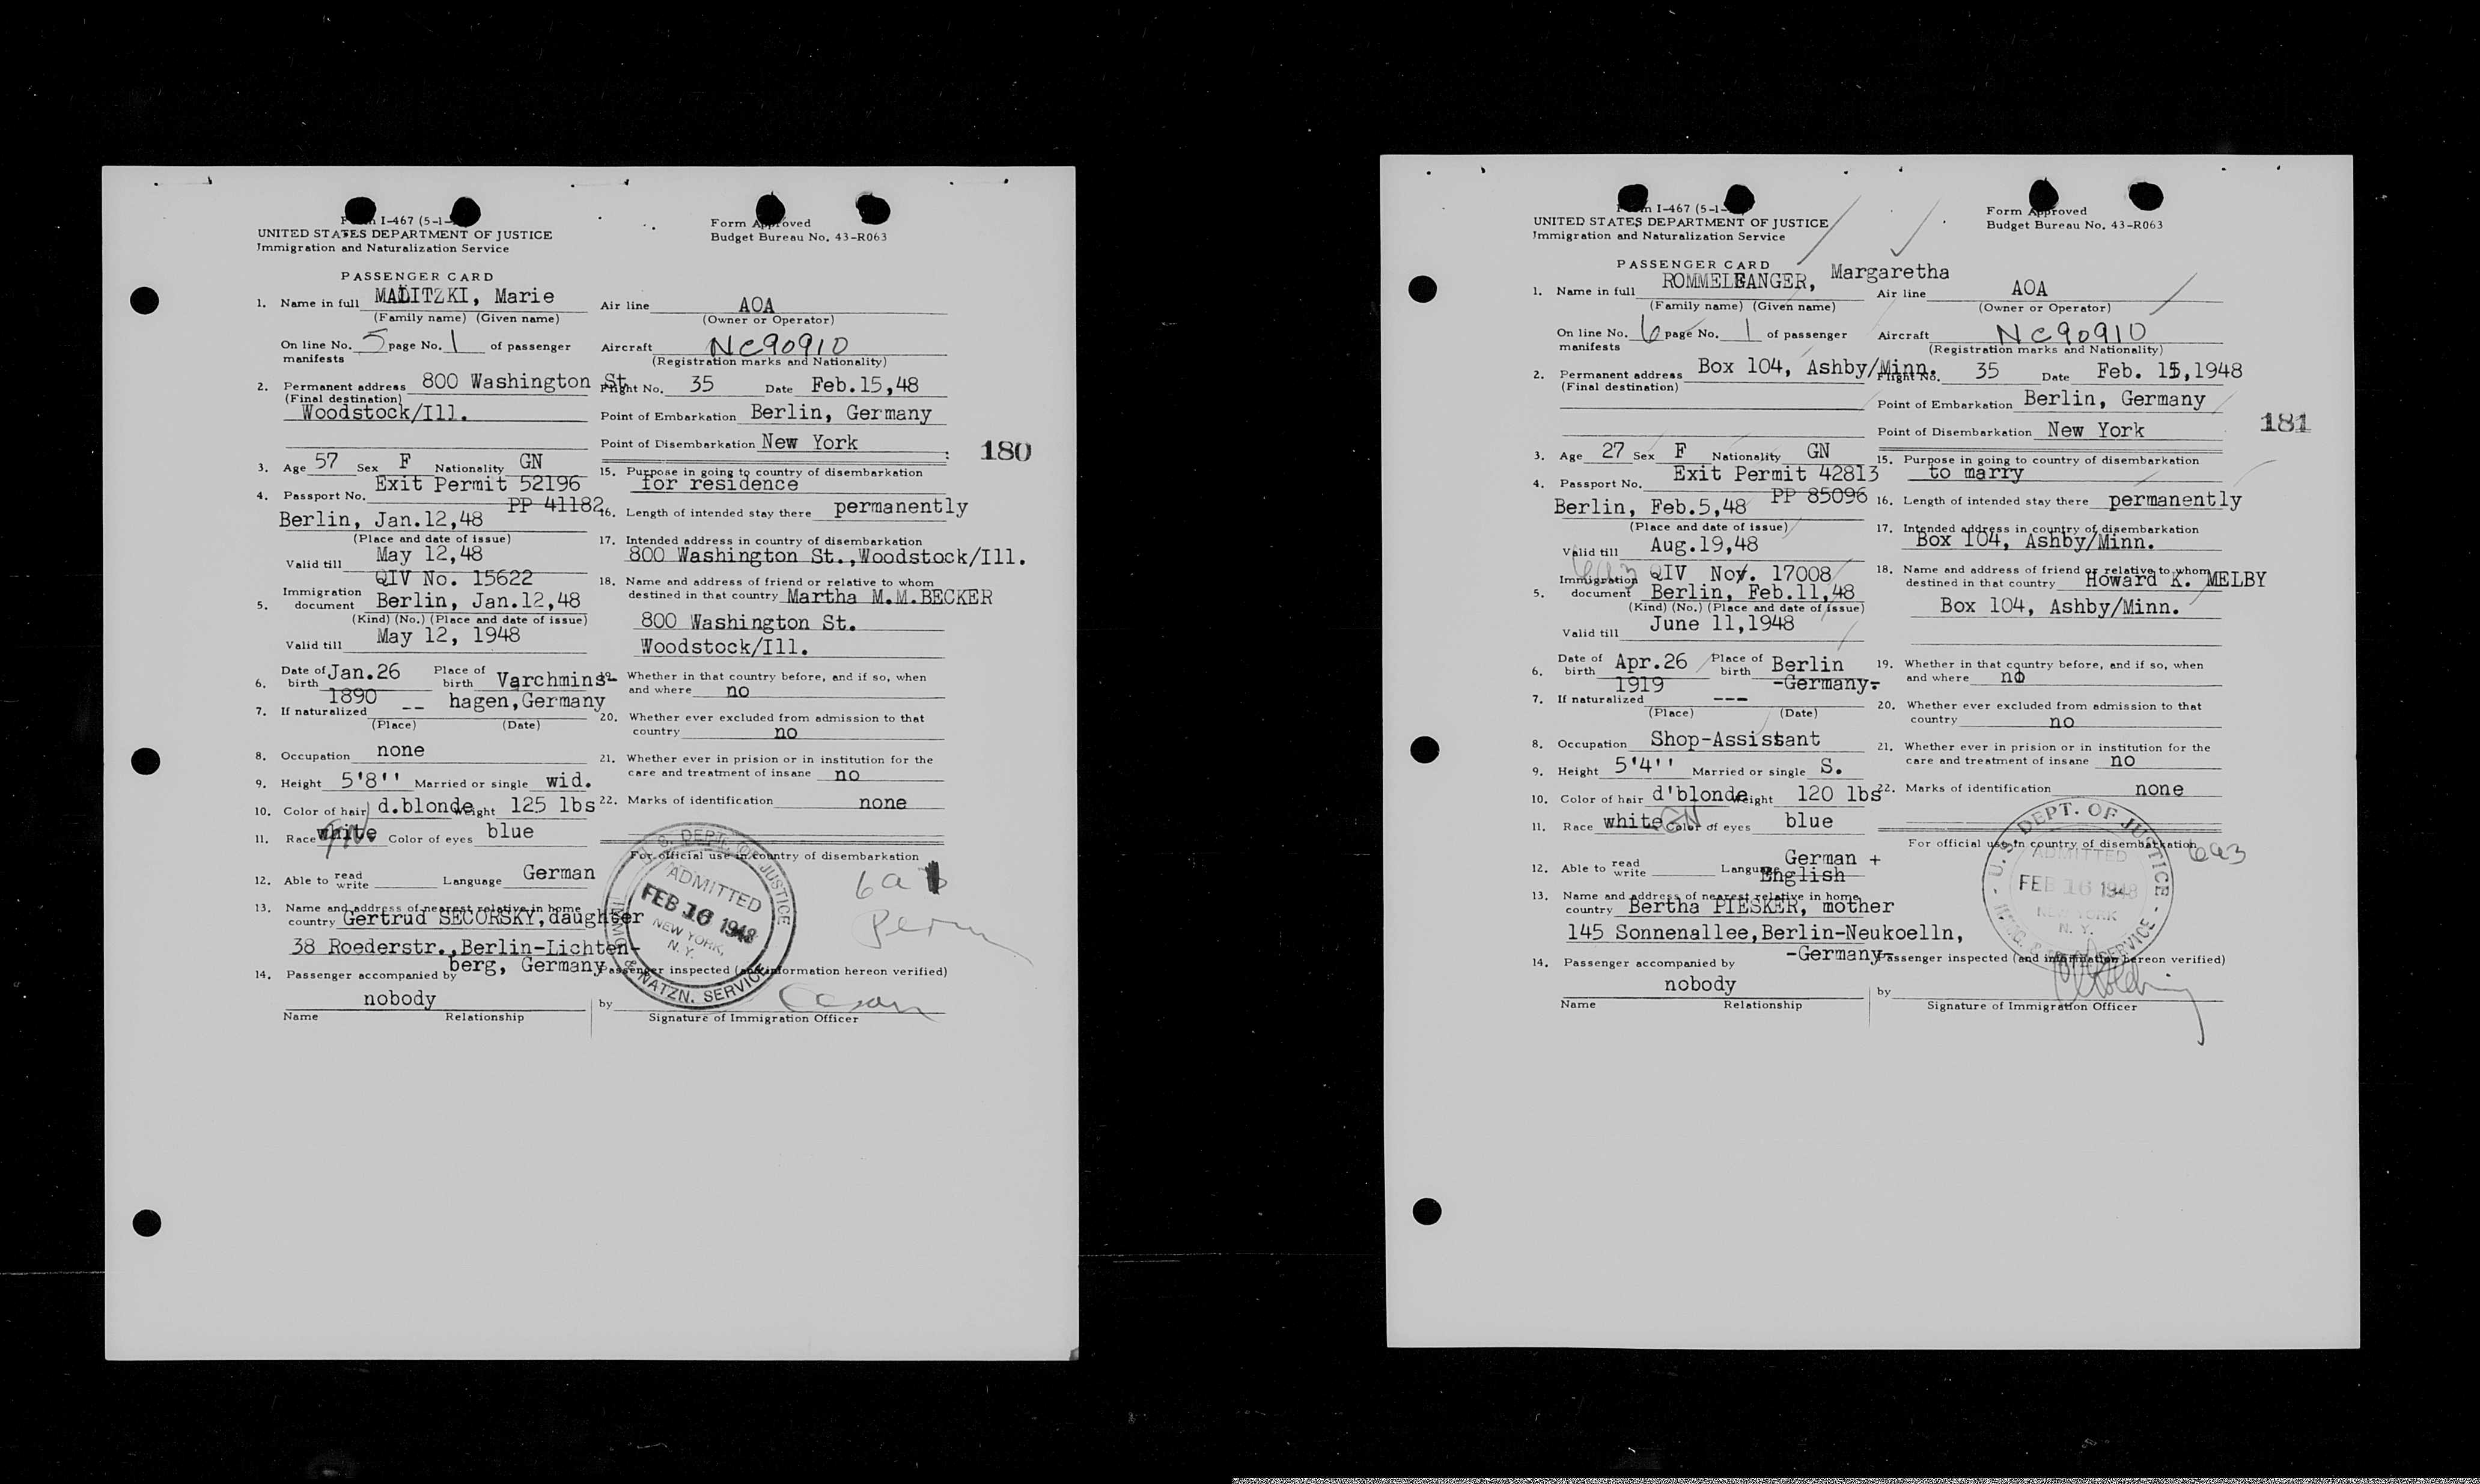 Form I-467 (5-1-
UNITED STATES DEPARTMENT OF JUSTICE
Immigration and Naturalization Service
Form Approved
Budget Bureau No. 43-R063
PASSENGER CARD
1. Name in full MALITZKI, Marie
(Family name) (Given name)
On line No. 5 page No. 1 of passenger
manifests
2. Permanent address 800 Washington St.
(Final destination)
Woodstock/Ill.
3. Age 57 Sex F Nationality GN
Exit Permit 52196
4. Passport No. PP 41182
Berlin, Jan.12,48
(Place and date of issue)
Valid till May 12,48
QIV No. 15622
5. Immigration document Berlin, Jan.12,48
(Kind) (No.) (Place and date of issue)
Valid till May 12, 1948
6. Date of birth Jan.26 1890 Place of birth Varchmins-
hagen,Germany
7. If naturalized --
(Place) (Date)
8. Occupation none
9. Height 5'8'' Married or single wid.
10. Color of hair d.blonde Weight 125 lbs
11. Race white Color of eyes blue
12. Able to read write Language German
13. Name and address of nearest relative in home
country Gertrud SECORSKY, daughter
38 Roederstr.,Berlin-Lichten-
berg, Germany
14. Passenger accompanied by
nobody
Name Relationship
Air line AOA
(Owner or Operator)
Aircraft NC90910
(Registration marks and Nationality)
Flight No. 35 Date Feb.15,48
Point of Embarkation Berlin, Germany
Point of Disembarkation New York
180
15. Purpose in going to country of disembarkation
for residence
16. Length of intended stay there permanently
17. Intended address in country of disembarkation
800 Washington St.,Woodstock/Ill.
18. Name and address of friend or relative to whom
destined in that country Martha M.M.BECKER
800 Washington St.
Woodstock/Ill.
19. Whether in that country before, and if so, when
and where no
20. Whether ever excluded from admission to that
country no
21. Whether ever in prision or in institution for the
care and treatment of insane no
22. Marks of identification none
For official use in country of disembarkation
U. S. DEPT. OF JUSTICE
ADMITTED
FEB 16 1948
NEW YORK,
N. Y.
IMMG. & NATZN. SERVICE
Passenger inspected (and information hereon verified)
by
Signature of Immigration Officer
Form I-467 (5-1-
UNITED STATES DEPARTMENT OF JUSTICE
Immigration and Naturalization Service
Form Approved
Budget Bureau No. 43-R063
PASSENGER CARD
1. Name in full ROMMELFANGER, Margaretha
(Family name) (Given name)
On line No. 6 page No. 1 of passenger
manifests
2. Permanent address Box 104, Ashby/Minn.
(Final destination)
3. Age 27 Sex F Nationality GN
Exit Permit 42813
4. Passport No. PP 85096
Berlin, Feb.5,48
(Place and date of issue)
Valid till Aug.19,48
5. Immigration document QIV No. 17008
Berlin, Feb.11,48
(Kind) (No.) (Place and date of issue)
Valid till June 11,1948
6. Date of birth Apr.26 1919 Place of birth Berlin
-Germany-
7. If naturalized ---
(Place) (Date)
8. Occupation Shop-Assistant
9. Height 5'4'' Married or single S.
10. Color of hair d'blonde Weight 120 lbs
11. Race white GN Color of eyes blue
12. Able to read write Language German +
English
13. Name and address of nearest relative in home
country Bertha PIESKER, mother
145 Sonnenallee,Berlin-Neukoelln,
-Germany-
14. Passenger accompanied by
nobody
Name Relationship
Air line AOA
(Owner or Operator)
Aircraft NC90910
(Registration marks and Nationality)
Flight No. 35 Date Feb. 15,1948
Point of Embarkation Berlin, Germany
Point of Disembarkation New York
181
15. Purpose in going to country of disembarkation
to marry
16. Length of intended stay there permanently
17. Intended address in country of disembarkation
Box 104, Ashby/Minn.
18. Name and address of friend or relative to whom
destined in that country Howard K. MELBY
Box 104, Ashby/Minn.
19. Whether in that country before, and if so, when
and where no
20. Whether ever excluded from admission to that
country no
21. Whether ever in prision or in institution for the
care and treatment of insane no
22. Marks of identification none
For official use in country of disembarkation
6a3
U. S. DEPT. OF JUSTICE
ADMITTED
FEB 16 1948
NEW YORK
N. Y.
Passenger inspected (and information hereon verified)
by
Signature of Immigration Officer